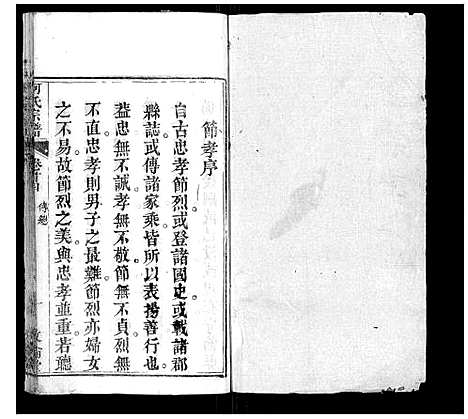 節孝序
自古忠孝節烈或登諸國史或載諸郡
縣誌或傳諸家乘皆所以表揚善行也
葢忠無不誠孝無不敬節無不貞烈無
不直忠孝則男子之最難節烈亦婦女
之不易故節烈之美與忠孝並重若聽
何氏宗譜
卷首
傳總